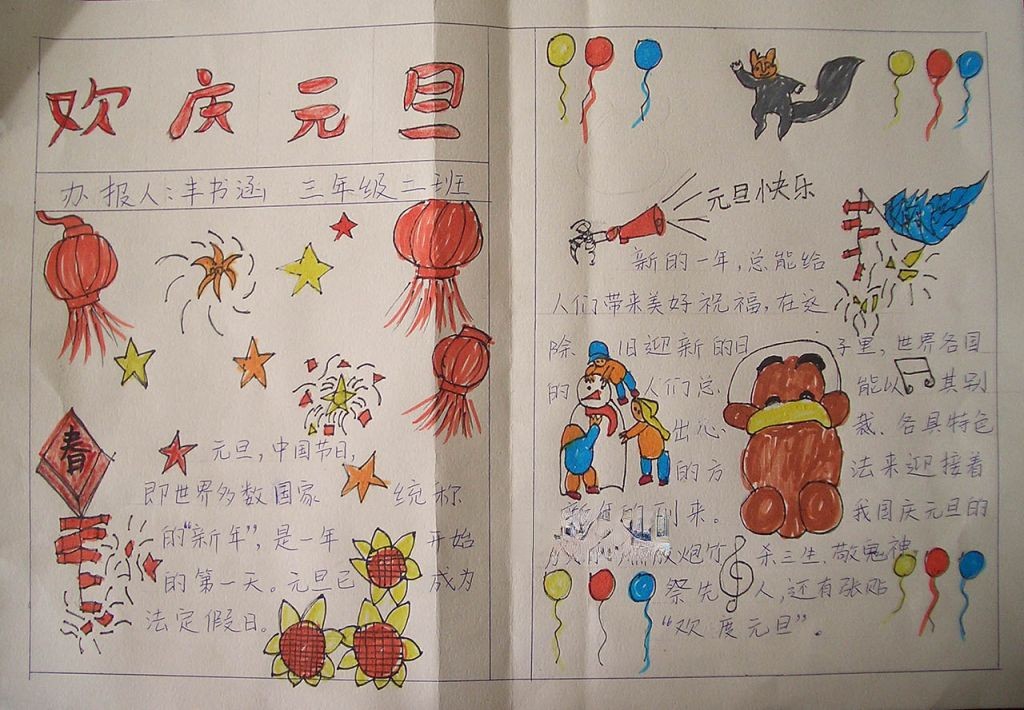 欢庆元旦
办报人:丰书涵 三年级二班
春
元旦,中国节日,
即世界多数国家 统称
的“新年”,是一年 开始
的第一天。元旦已 成为
法定假日。
元旦快乐
新的一年,总能给
人们带来美好祝福,在这
除 旧迎新的日 子里,世界各国
的 人们总 能以 其别
出心 裁、各具特色
的方 法来迎接着
到来。 我国庆元旦的
放炮竹 杀三生、敬鬼神
祭先 人,还有张贴
“欢度元旦”。